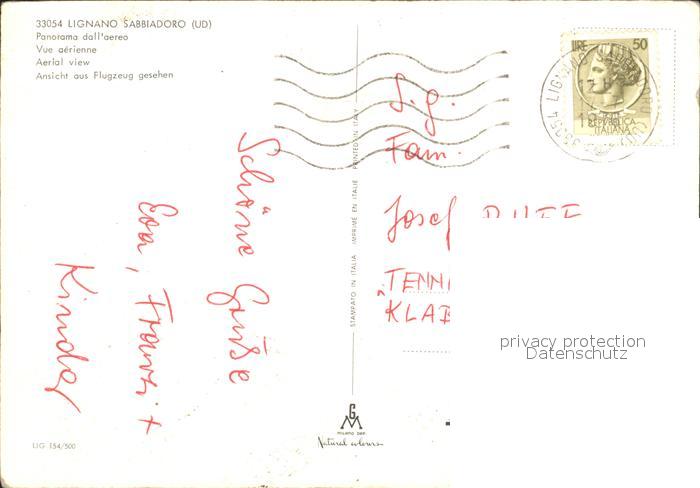 33054 LIGNANO SABBIADORO (UD)
Panorama dall'aereo
Vue aérienne
Aerial view
Ansicht aus Flugzeug gesehen
Schöne Grüße
Eva, Franzi +
Kinder
STAMPATO IN ITALIA IMPRIMÉ EN ITALIE PRINTED IN ITALY
LIRE 50
REPUBBLICA
ITALIANA
33054 LIGNANO
S.g.
Fam.
Josef
privacy protection
Datenschutz
GM
MILANO DEP.
Natural colours
LIG 154/500